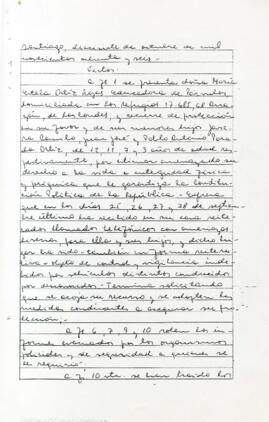 Santiago, diecisiete de octubre de mil
novecientos ochenta y seis.
Vistos:
A fs 1 se presenta doña María
Estela Ortiz Rojas educadora de Párvulos
domiciliada en Los Refugios 17.685, Lo Arra-
yán, de Las Condes, y recurre de protección
en su favor y de sus menores hijos Javie-
ra, Camilo, Juan José y Pablo Antonio Para-
da Ortiz, de 12, 11, 7 y 3 años de edad res-
pectivamente, por estimar amenazado su
derecho a la vida e integridad física
y psíquica que le garantiza la Constitu-
ción Política de la República. Expresa
que en los días 25, 26, 27 y 28 de septiem-
bre último ha recibido en su casa reite-
rados llamados telefónicos con amenazas
diversas para ella y sus hijos, y dicho lu-
gar ha sido también en forma reitera-
tiva objeto de control y vigilancia indis-
por vehículos distintos conducidos
por desconocidos. Termina solicitando
que se acoja su recurso y se adopten las
medidas conducentes a asegurar su pro-
tección.
A fs 6, 7, 8, 9 y 10 rolan los in-
formes evacuados por los organismos
policiales y de seguridad a quienes se
les requirió.
A fs 10 vta se han traído los